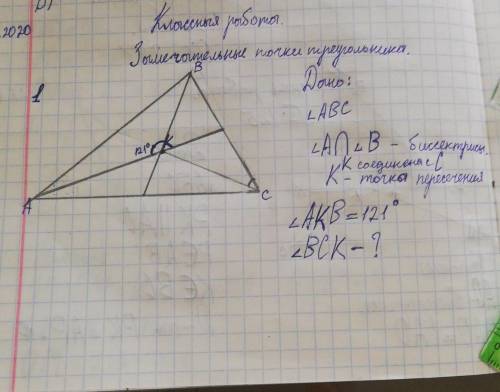 .2020
Классная работа.
Замечательные точки треугольника.
1
B
121°
K
A
C
Дано:
∠ABC
∠A∩∠B - биссектрисы.
K соединена с C
K - точка пересечения
∠AKB = 121°
∠BCK - ?